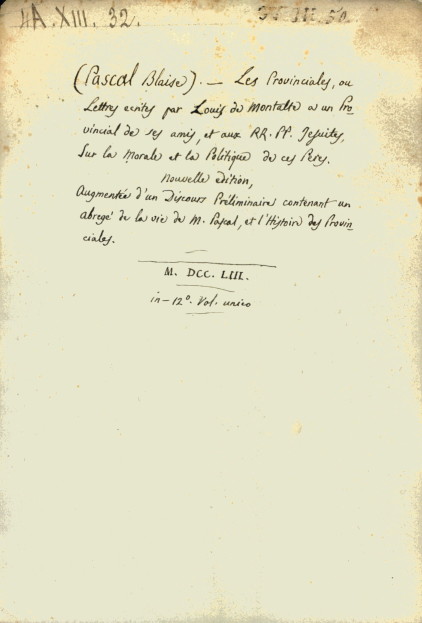 4A.XIII. 32.
(Pascal Blaise). — Les Provinciales, ou
Lettres ecrites par Louis de Montalte a un Pro
vincial de ses amis, et aux RR. PP. Jesuites,
Sur la Morale et la Politique de ces Peres.
Nouvelle edition,
Augmentée d'un Discours Préliminaire contenant un
abregé de la vie de M. Pascal, et l'Histoire des Provin
ciales.
M. DCC. LIII.
in-12º. Vol. unico